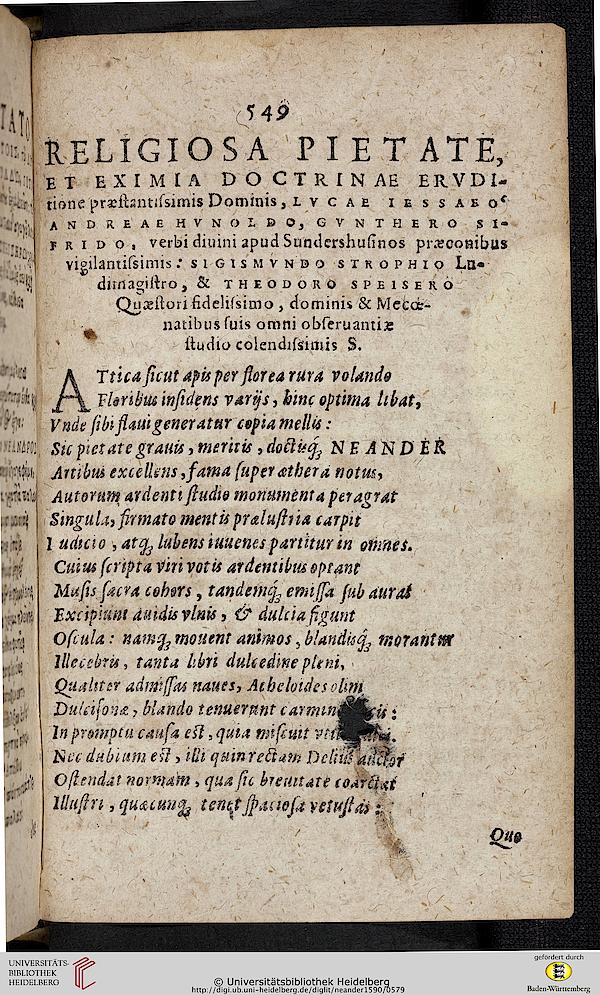 549
RELIGIOSA PIETATE,
ET EXIMIA DOCTRINAE ERVDI-
tione præstantissimis Dominis, LVCAE IESSAEO
ANDREAE HVNOLDO, GVNTHERO SI-
FRIDO, verbi diuini apud Sundershusinos præconibus
vigilantissimis: SIGISMVNDO STROPHIO Lu-
dimagistro, & THEODORO SPEISERO
Quæstori fidelissimo, dominis & Mecœ-
natibus suis omni obseruantiæ
studio colendissimis S.
ATtica sicut apis per florea rura volando
Floribus insidens varijs, hinc optima libat,
Vnde sibi flaui generatur copia mellis:
Sic pietate grauis, meritis, doctusq; NEANDER
Artibus excellens, fama super æthera notus,
Autorum ardenti studio monumenta peragrat
Singula, firmato mentis prælustria carpit
Iudicio, atq; lubens iuuenes partitur in omnes.
Cuius scripta viri votis ardentibus optant
Musis sacra cohors, tandemq; emissa sub auras
Excipiunt auidis vlnis, & dulcia figunt
Oscula: namq; mouent animos, blandisq; morantur
Illecebris, tanta libri dulcedine pleni,
Qualiter admissas naues, Acheloides olim
Dulcisonæ, blando tenuerunt
In promptu causa est, quia miscuit
Nec dubium est, illi quin rectam Delius auctor
Ostendat normam, qua sic breuitate coarctat
Illustri, quæcunq; tenet spaciosa vetustas:
Quo
UNIVERSITÄTS-
BIBLIOTHEK
HEIDELBERG
© Universitätsbibliothek Heidelberg
http://digi.ub.uni-heidelberg.de/diglit/neander1590/0579
gefördert durch
Baden-Württemberg